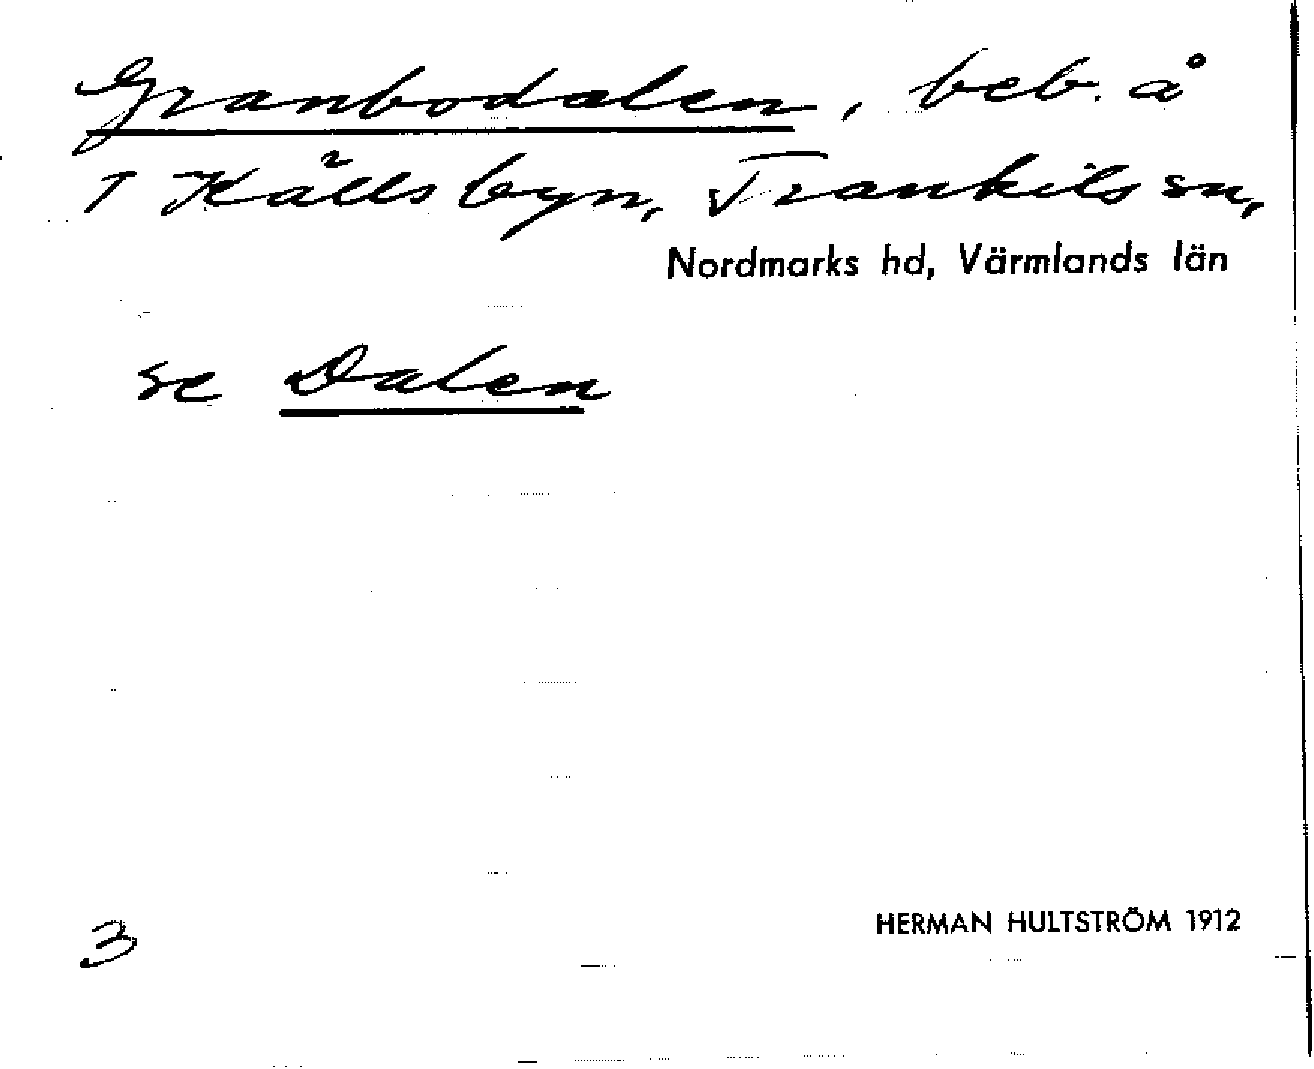 Granbodalen, beb. å
1 Källsbyn, Trankils sn,
Nordmarks hd, Värmlands län
se Dalen
HERMAN HULTSTRÖM 1912
3